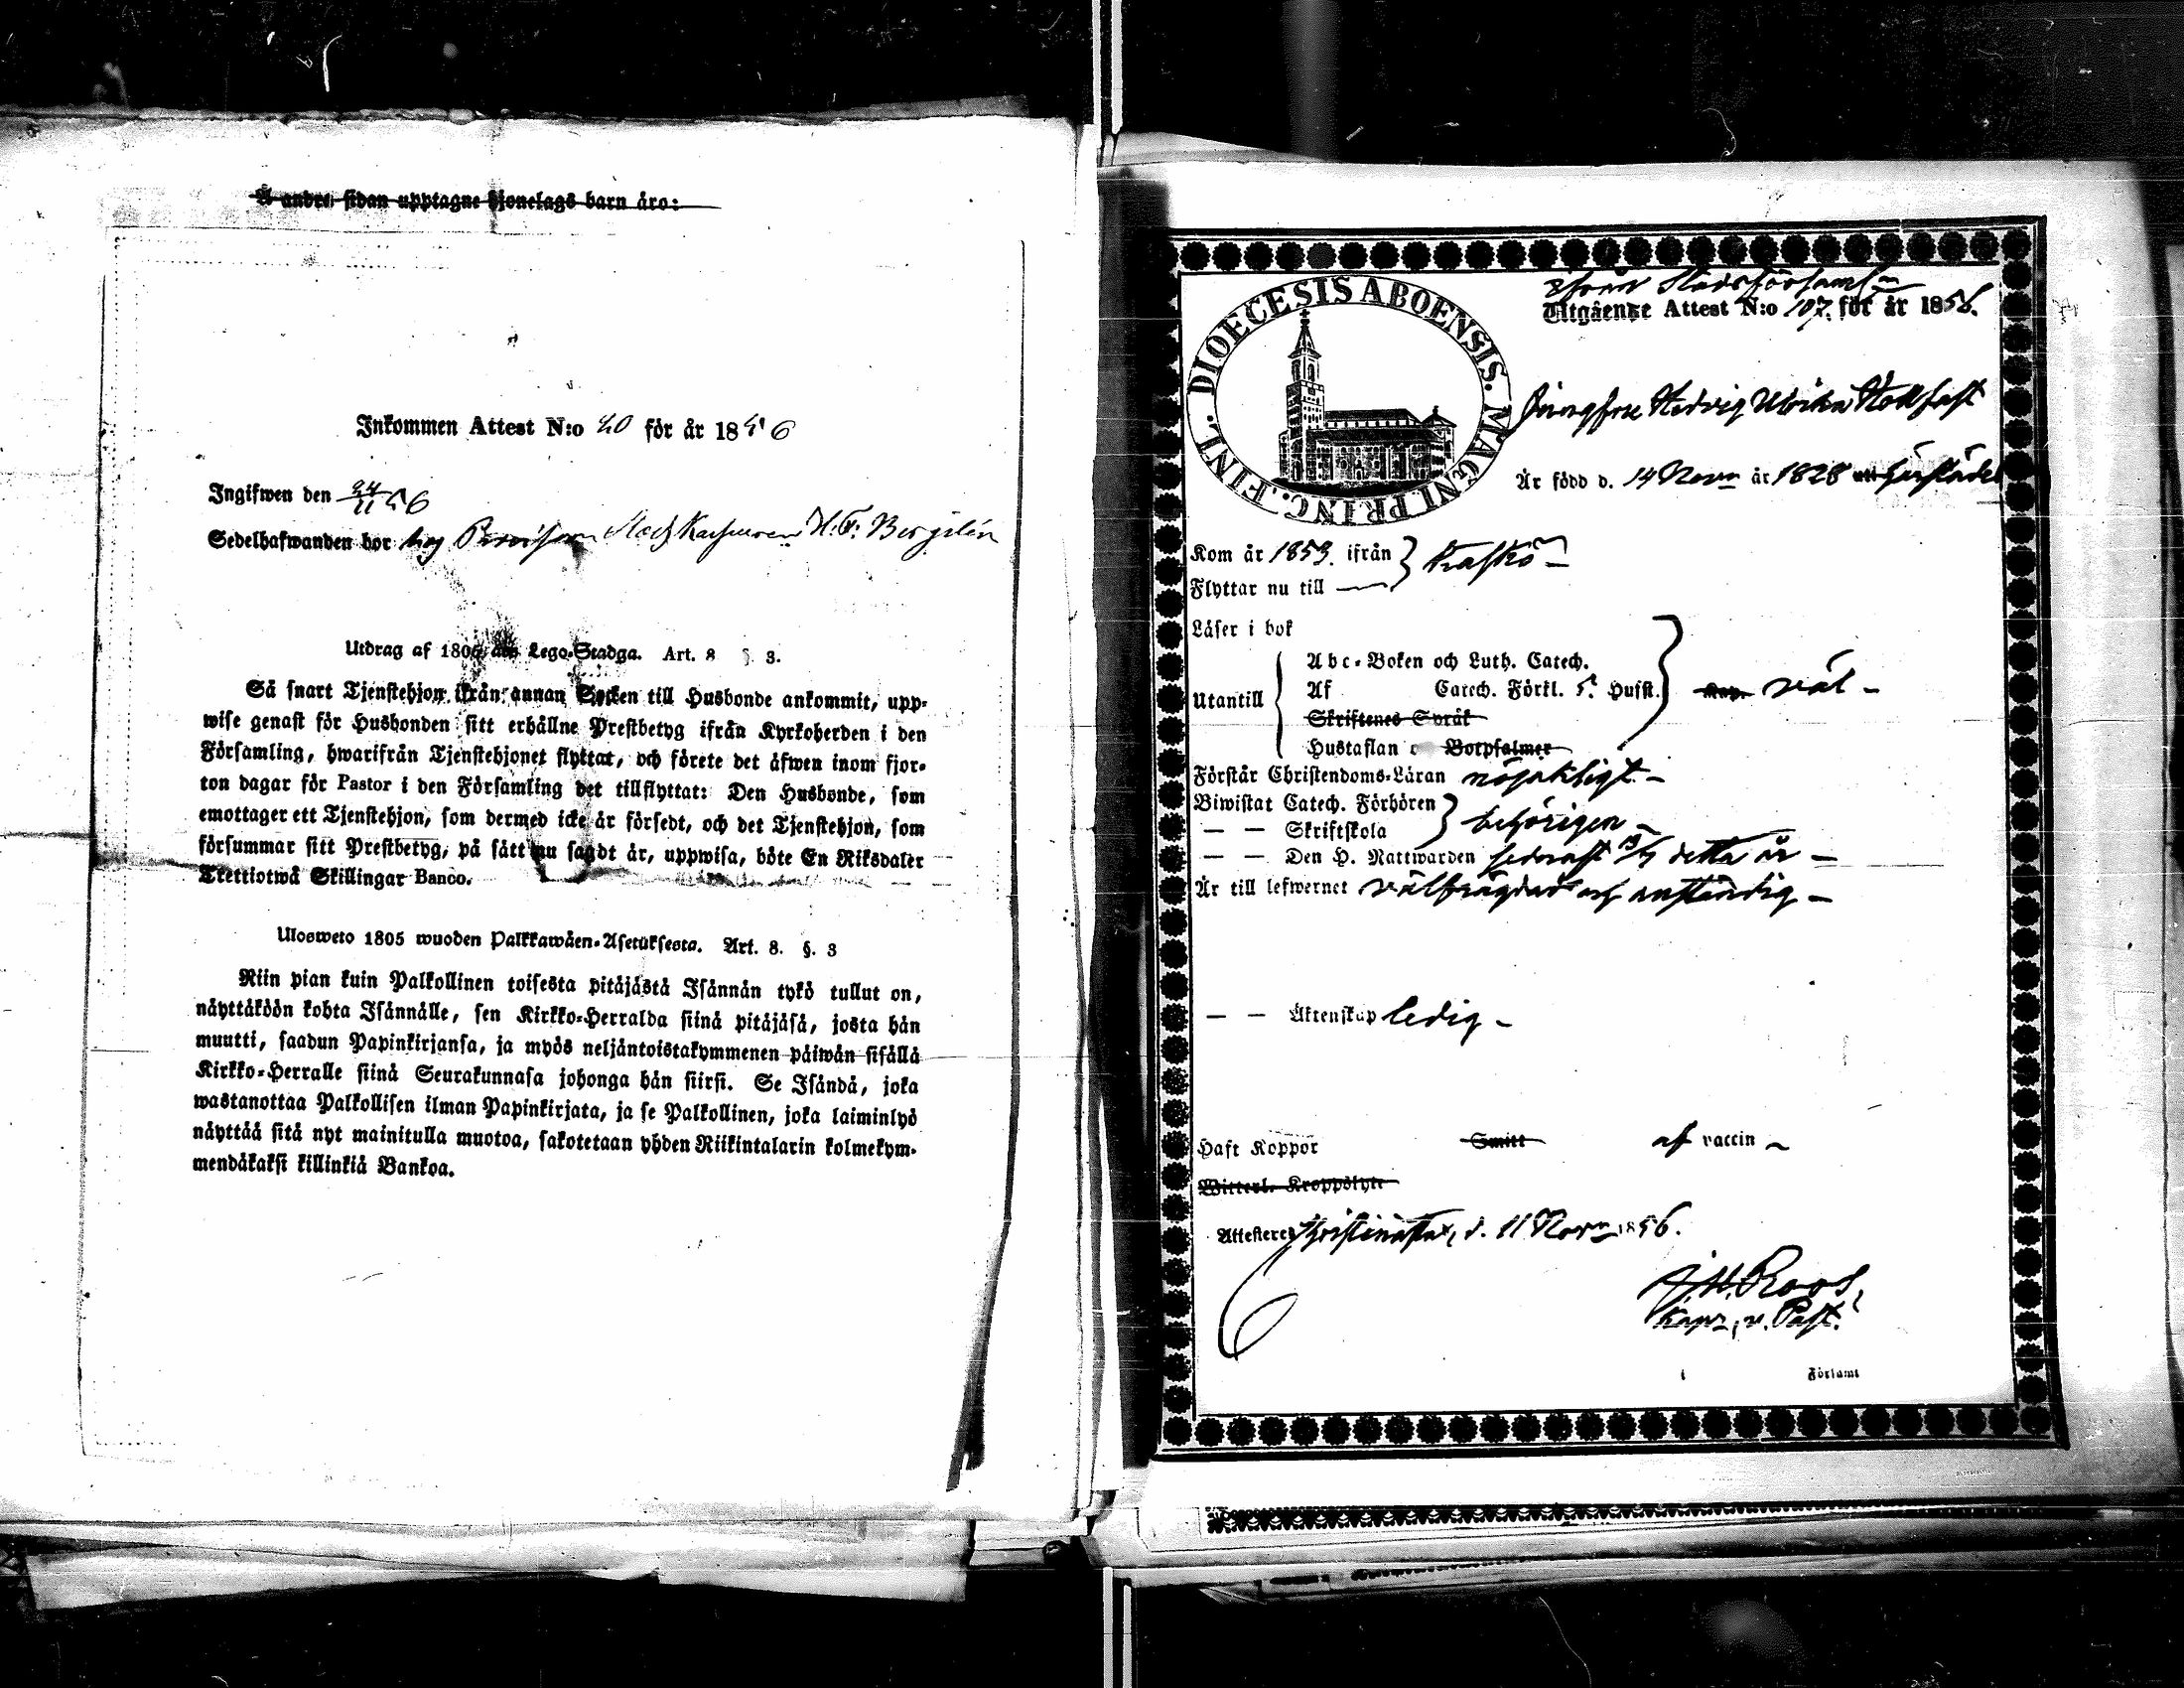 Å andra sidan upptagne hjonelags barn äro:
Inkommen Attest N:o 40 för år 1856
Ingifwen den 24/11 56
Sedelhafwanden bor hos H. F. Bergelin
Utdrag af 1805 års Lego-Stadga. Art. 8 §. 3.
Så snart Tjenstehjon ifrån annan Socken till Husbonde ankommit, upp-
wise genast för Husbonden sitt erhållne Prestbetyg ifrån Kyrkoherden i den
Församling, hwarifrån Tjenstehjonet flyttat, och förete det äfwen inom fjor-
ton dagar för Pastor i den Församling det tillflyttat: Den Husbonde, som
emottager ett Tjenstehjon, som dermed icke är försedt, och det Tjenstehjon, som
försummar sitt Prestbetyg, på sätt nu sagdt är, uppwisa, böte En Riksdaler
Trettiotwå Skillingar Banco.
Ulosweto 1805 wuoden Palkkawäen-Asetuksesta. Art. 8. §. 3
Niin pian kuin Palkollinen toisesta pitäjästä Isännän tykö tullut on,
näyttäköön kohta Isännälle, sen Kirkko-Herralda siinä pitäjäsä, josta hän
muutti, saadun Papinkirjansa, ja myös neljäntoistakymmenen päiwän sisällä
Kirkko-Herralle siinä Seurakunnasa johonga hän siirsi. Se Isändä, joka
wastanottaa Palkollisen ilman Papinkirjata, ja se Palkollinen, joka laiminlyö
näyttää sitä nyt mainitulla muotoa, sakotetaan yhden Riikintalarin kolmekym-
mendäkaksi killinkiä Bankoa.
DIOECESIS ABOENSIS. MAGNI PRINC. FINL.
ifrån Stadsförsaml
Utgående Attest N:o 107. för år 1856.
Jungfru Hedvig Ulrika Hollfast
Är född d. 14 Novr år 1828 härstädes
Kom år 1853. ifrån } Kaskö
Flyttar nu till
Läser i bok
Abc-Boken och Luth. Catech.
Utantill Af Catech. Förkl. 5. Hufst. väl
Skriftenes Språk
Hustaflan o Botpsalmer
Förstår Christendoms-Läran nöjaktigt
Biwistat Catech. Förhören } behörigen
— — Skriftskola
— — Den H. Nattwarden sednast 13/7 detta år
Är till lefwernet välfrägdad och anständig
— — Äktenskap ledig
Haft Koppor Smitt af vaccin
Witterl. Kroppslyte
Attesteres Kristinestad, d. 11 Novr 1856.
J. H. Roos,
Kapn, v. Past.
i Församl